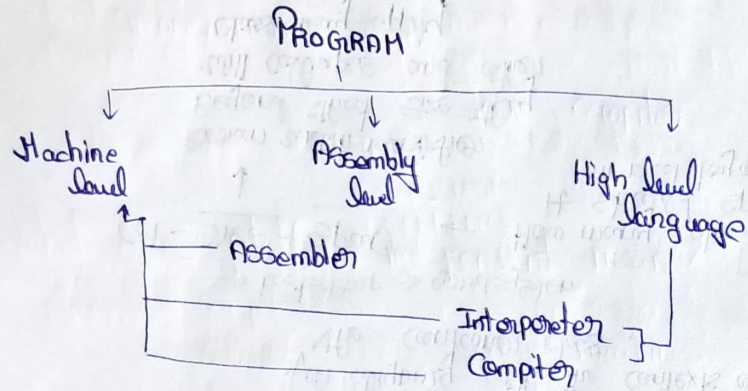 PROGRAM
Machine level
Assembly level
High level language
Assembler
Interporeter
Compiter